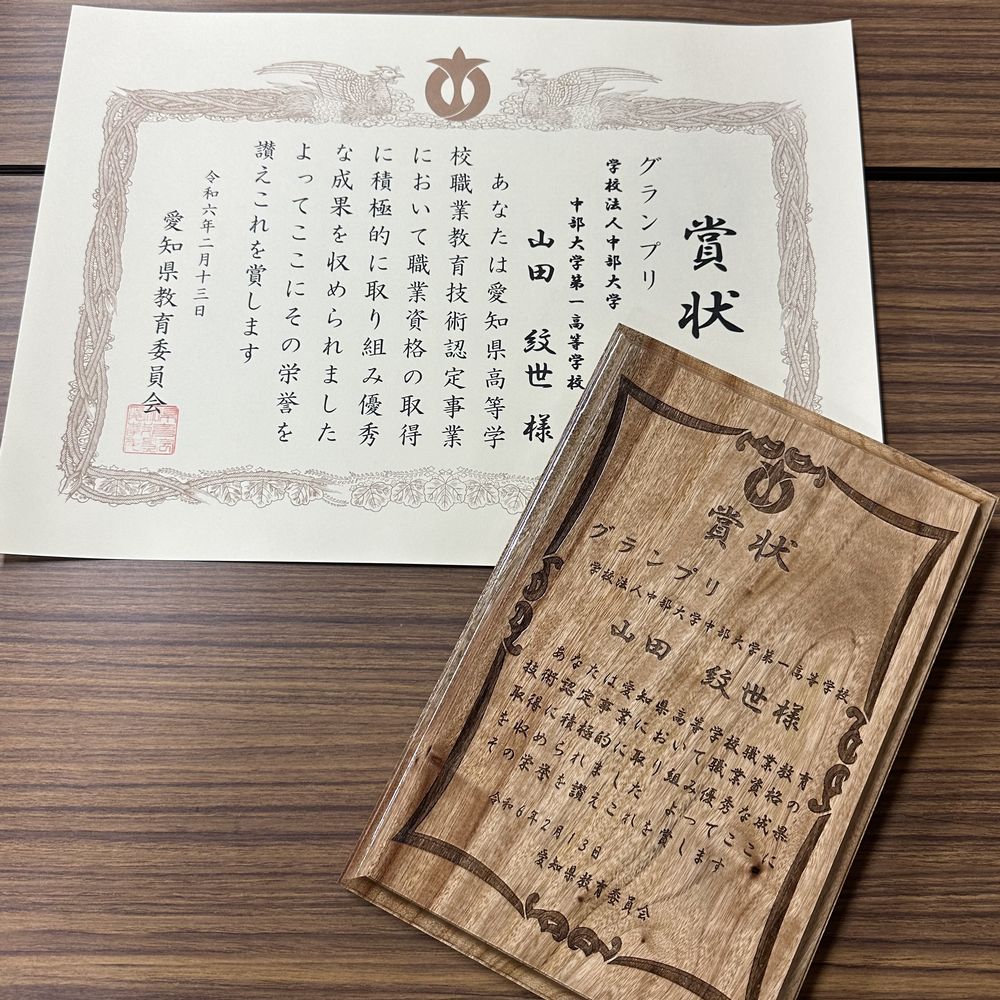 賞状
グランプリ
学校法人中部大学
中部大学第一高等学校
山田 紋世 様
あなたは愛知県高等学
校職業教育技術認定事業
において職業資格の取得
に積極的に取り組み優秀
な成果を収められました
よってここにその栄誉を
讃えこれを賞します
令和六年二月十三日
愛知県教育委員会
賞状
グランプリ
学校法人中部大学中部大学第一高等学校
山田 紋世様
あなたは愛知県高等学校職業教育
技術認定事業において職業資格の
取得に積極的に取り組み優秀な成果
を収められました よってここに
その栄誉を讃えこれを賞します
令和6年2月13日
愛知県教育委員会